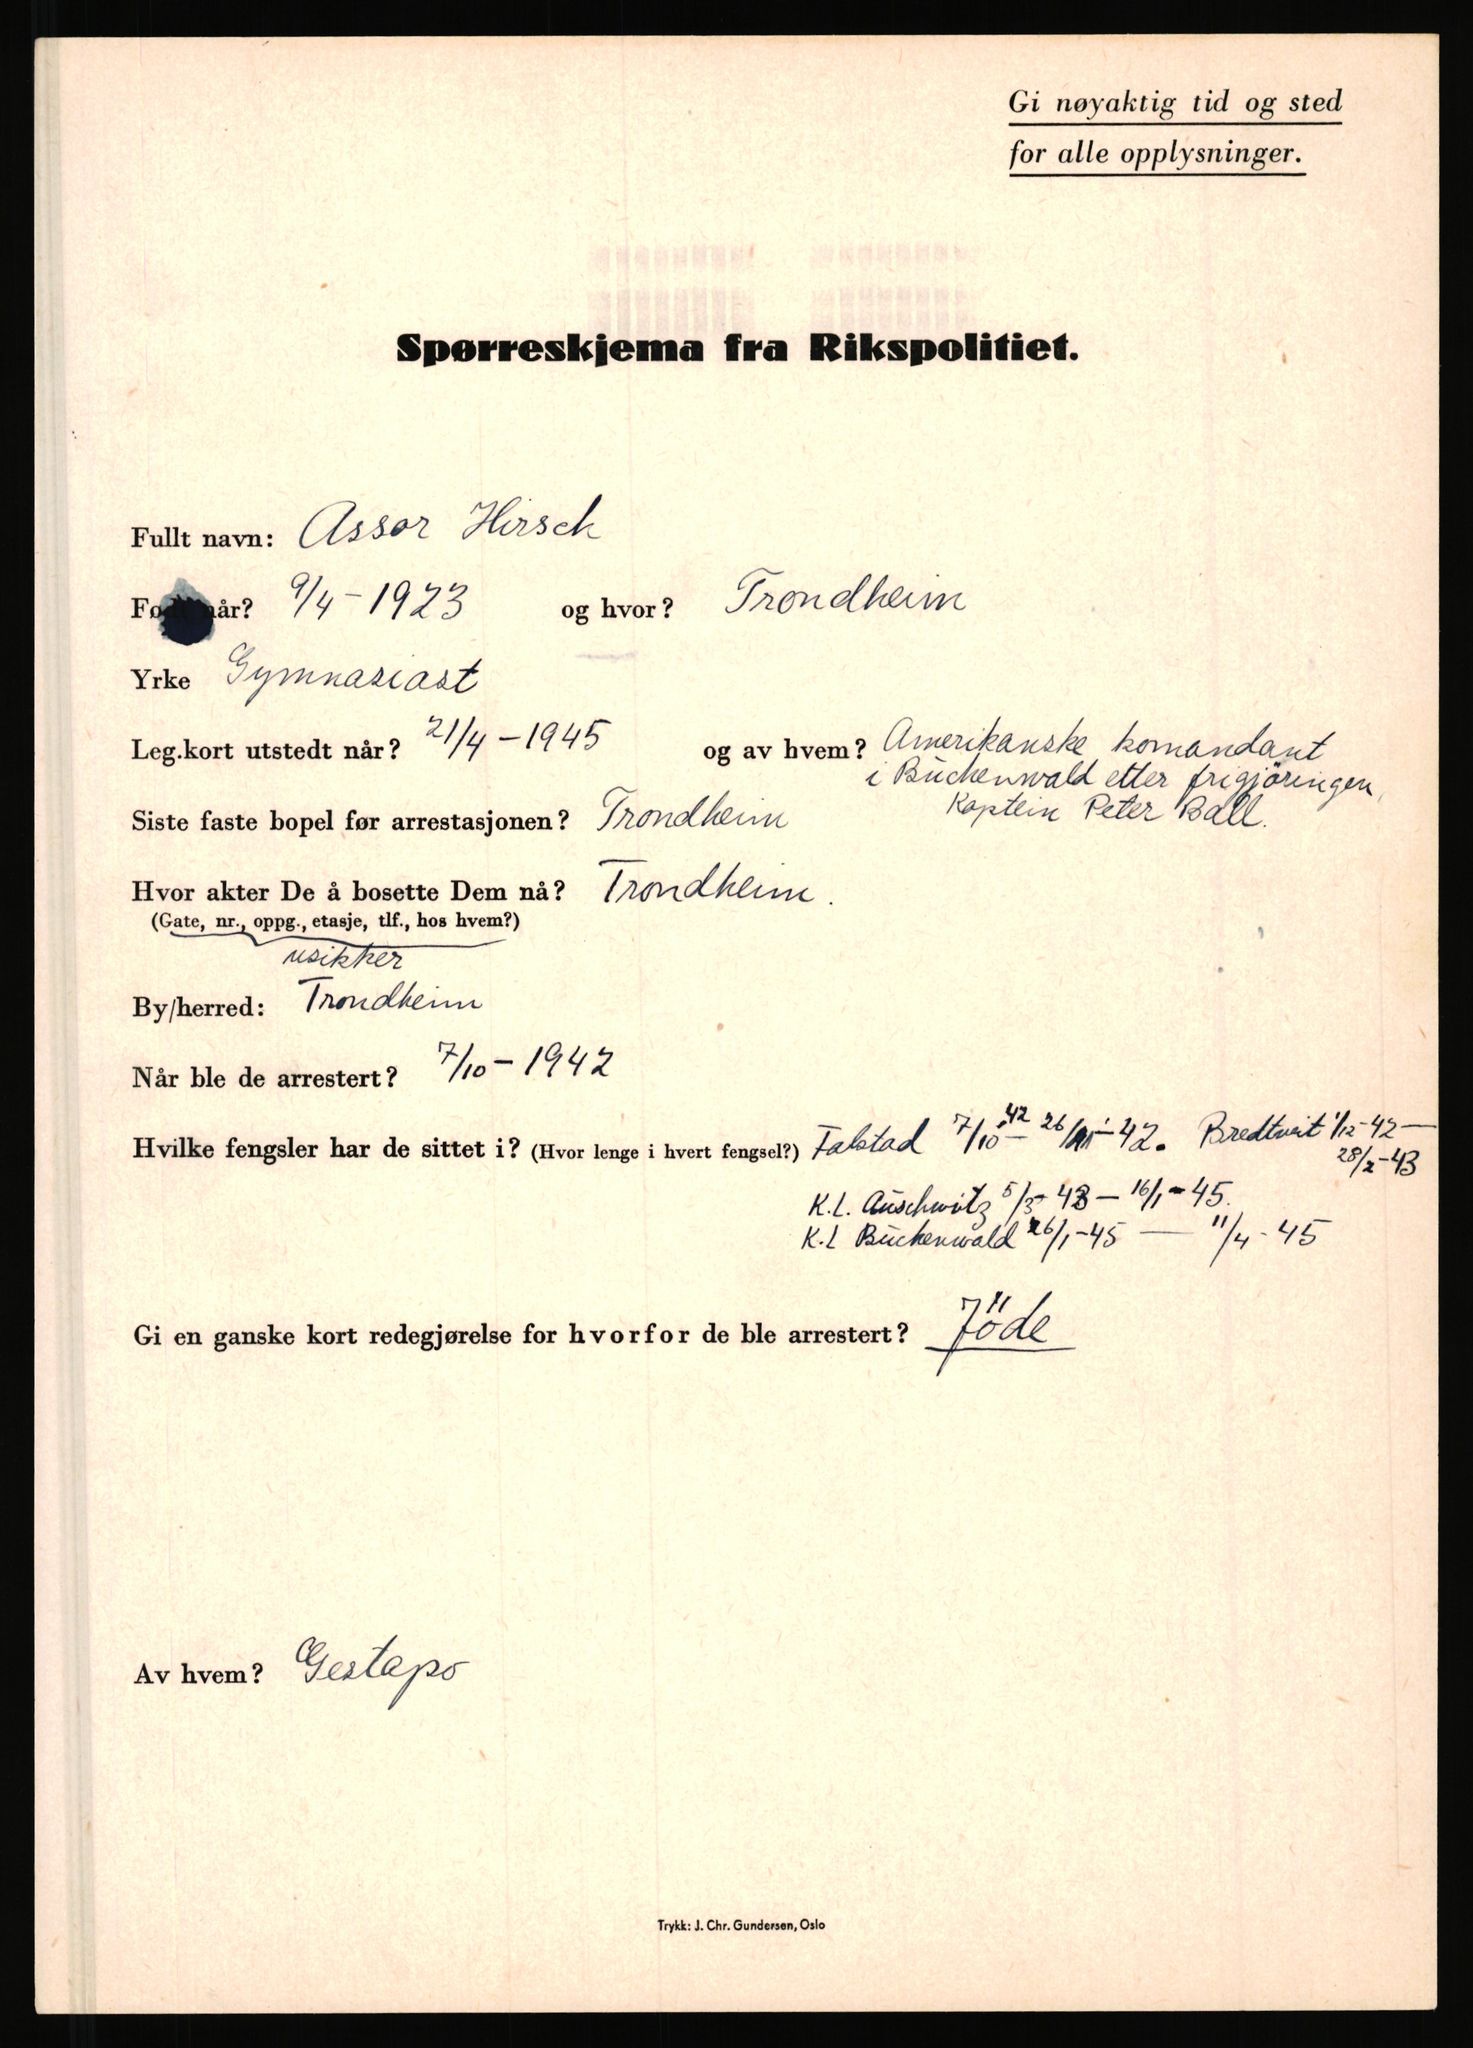 Gi nøyaktig tid og sted
for alle opplysninger.
Spørreskjema fra Rikspolitiet.
Fullt navn: Assor Hirsch
Født når? 9/4 - 1923 og hvor? Trondheim
Yrke Gymnasiast
Leg.kort utstedt når? 21/4 - 1945 og av hvem? Amerikanske komandant
i Buchenwald etter frigjöringen,
Kaptein Peter Ball.
Siste faste bopel før arrestasjonen? Trondheim
Hvor akter De å bosette Dem nå? Trondheim.
(Gate, nr., oppg., etasje, tlf., hos hvem?)
usikker
By/herred: Trondheim
Når ble de arrestert? 7/10 - 1942
Hvilke fengsler har de sittet i? (Hvor lenge i hvert fengsel?) Falstad 7/10 42 - 26/11 - 42. Bredtveit 1/12 - 42 —
28/2 - 43
K.L. Auschwitz 5/3 - 43 — 16/1 - 45.
K.L Buchenwald 26/1 - 45 — 11/4 - 45
Gi en ganske kort redegjørelse for hvorfor de ble arrestert? Jöde
Av hvem? Gestapo
Trykk: J. Chr. Gundersen, Oslo